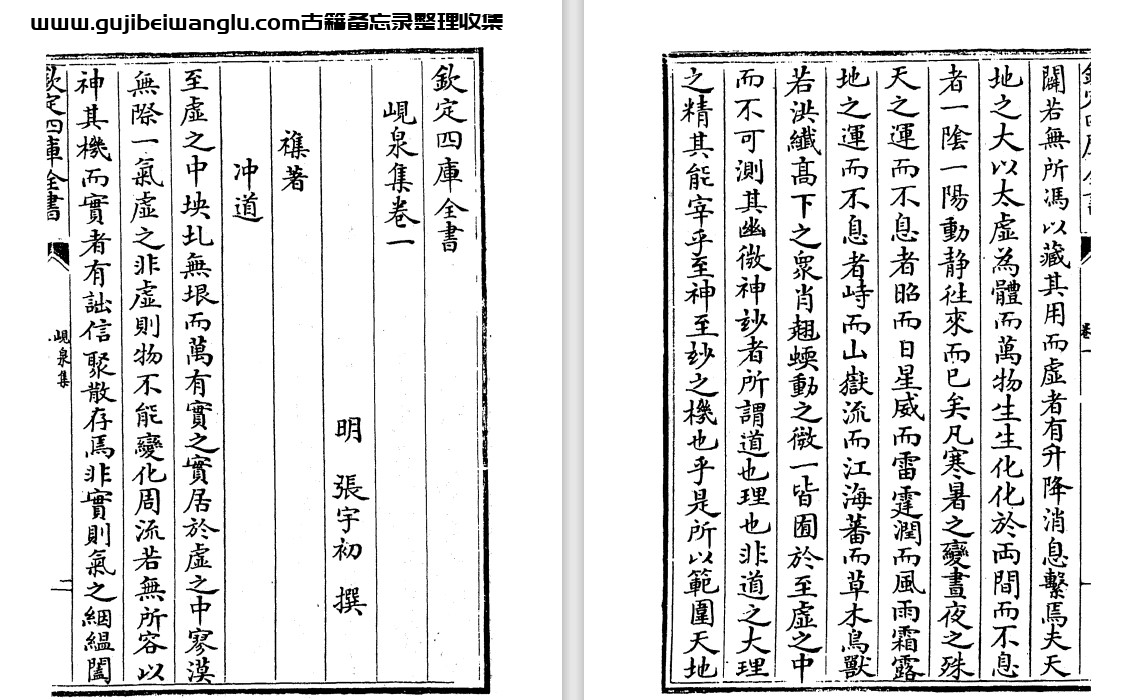 www.gujibeiwanglu.com古籍备忘录整理收集
欽定四庫全書
峴泉集卷一
明 張宇初 撰
襍著
冲道
至虛之中坱圠無垠而萬有實之實居於虛之中寥漠
無際一氣虛之非虛則物不能變化周流若無所容以
神其機而實者有詘信聚散存焉非實則氣之絪縕闔
欽定四庫全書
峴泉集
二
欽定四庫全書
卷一
闢若無所馮以藏其用而虛者有升降消息繫焉夫天
地之大以太虛為體而萬物生生化化於兩間而不息
者一陰一陽動静徃來而已矣凡寒暑之變晝夜之殊
天之運而不息者昭而日星威而雷霆潤而風雨霜露
地之運而不息者峙而山嶽流而江海蕃而草木鳥獸
若洪纖髙下之衆肖翹蝡動之微一皆囿於至虛之中
而不可測其幽微神妙者所謂道也理也非道之大理
之精其能宰乎至神至妙之機也乎是所以範圍天地